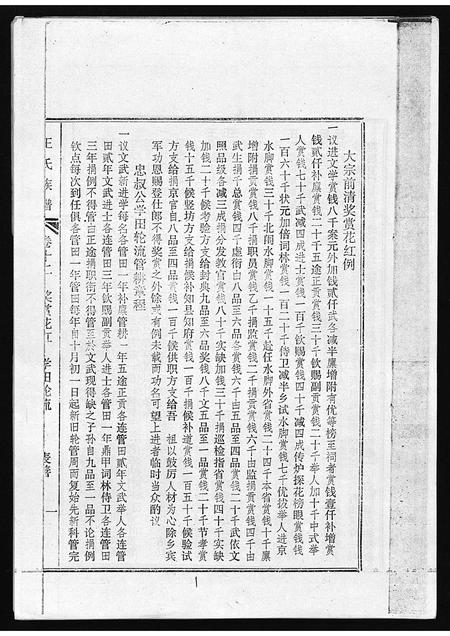 大宗前清奖赏花红例
一议进文学赏钱八千案元外加钱贰仟武各减半廪增附有优等榜至祠者赏钱壹仟补增赏
钱贰仟补廪赏钱二十千五途正贡赏钱三十千钦赐副贡赏钱二十千举人加十千中式举
人赏钱七十千武减四十千进士赏钱一百千钦赐赏钱四十千武减四十千传胪探花榜眼赏钱钱
一百六十千状元加倍词林赏钱一百二十千侍卫减半乡试水脚赏钱七千优拔举人进京
水脚赏钱三十千北闱水脚赏钱一十五千赴任水脚外省赏钱二十四千本省赏钱十千廪
增附捐贡赏钱八千捐职员赏钱乙千捐监赏钱二千捐贡赏钱六千由监捐贡赏钱四千由
武生捐千总赏钱四千虚衔由八品至六品各赏钱六千由五品至四品赏钱二十千武依文
照品级各减三成捐分发教官赏钱八十千实缺加钱三十千捐巡检指省赏钱四十千实缺
加钱二十千候考验方支给封典九品至六品奖钱八千文五品至一品赏钱二十千节孝赏
钱十五千候竖坊方支给捐候补知县知府赏钱一百千捐候补道赏钱一百五十千候验试
方支给捐京官自八品至四品赏钱一百千候供职方支给吾 祖以鼓厉人材为心除乡宾
军功恩赐登仕郎不得奖赏之外馀或有例未载而功名可望上进者临时当众酌议
忠叔公学田轮流管耕赏经
一议文武新进学每名各管田一年补廪管耕一年五途正贡各连管田贰年文武举人各连管
田贰年文武进士各连管田三年钦赐副贡举人进士各管田一年鼎甲词林侍卫各连管田
三年捐例不得管由正途捐职衔不得管至于文武现得缺之子孙自九品至一品不论捐例
钦点每次到任俱各管田一年管田每年自十月初一日起新旧轮管周而复始先新科管完
王氏族谱
卷十一
奖赏花红
学田轮流
一
1